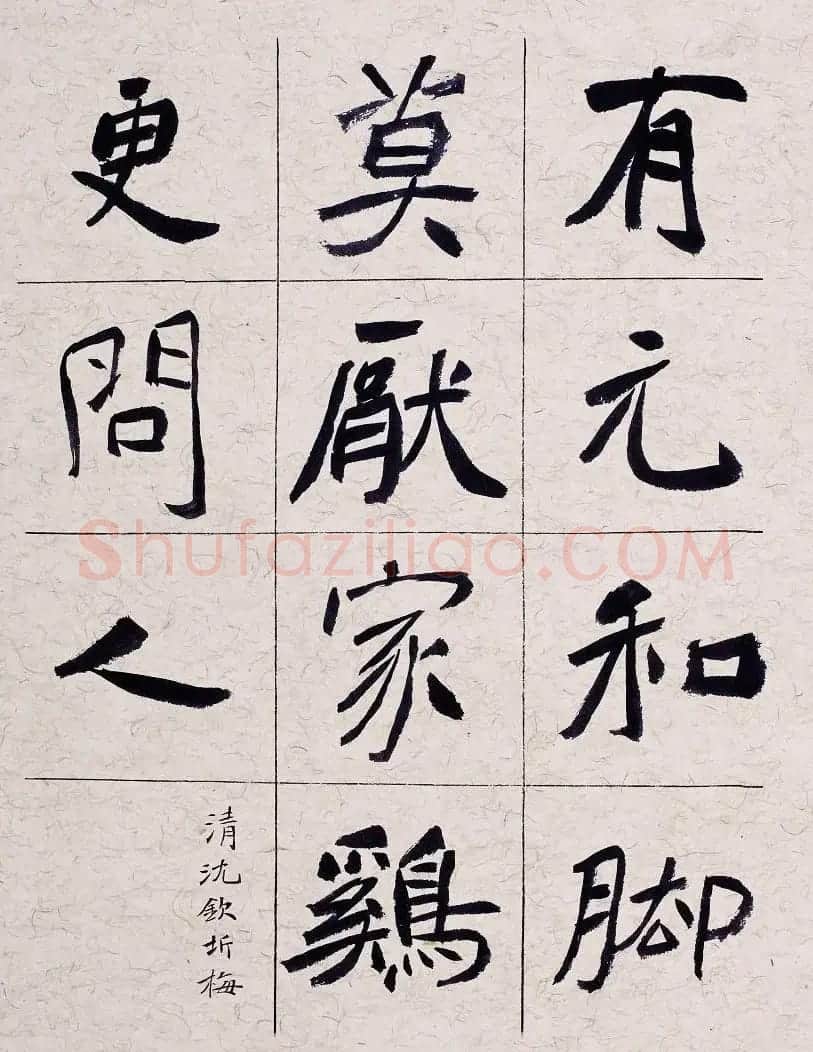 有元和脚
莫厭家鷄
更問人
清沈欽圻梅
Shufaziliao.COM